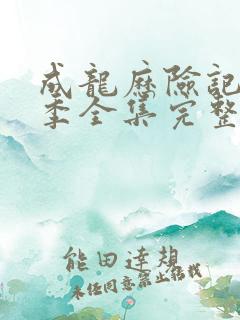 成龍歷險記
季全集完整
能田達規
未任同意禁止轉載